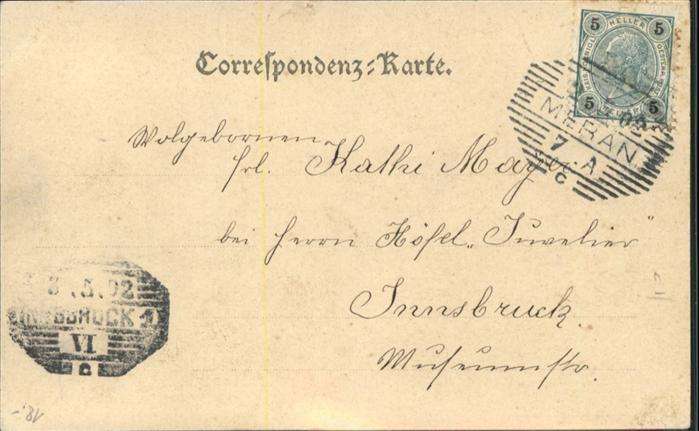 Correspondenz-Karte.
5 HELLER 5
5 5
MERAN
7 A
Wolgebornen
Frl. Kathi Mayr
bei Herrn Höfel „Juwelier"
Innsbruck
Museumstr.
3.5.02
INNSBRUCK 1
VI
C
18.-